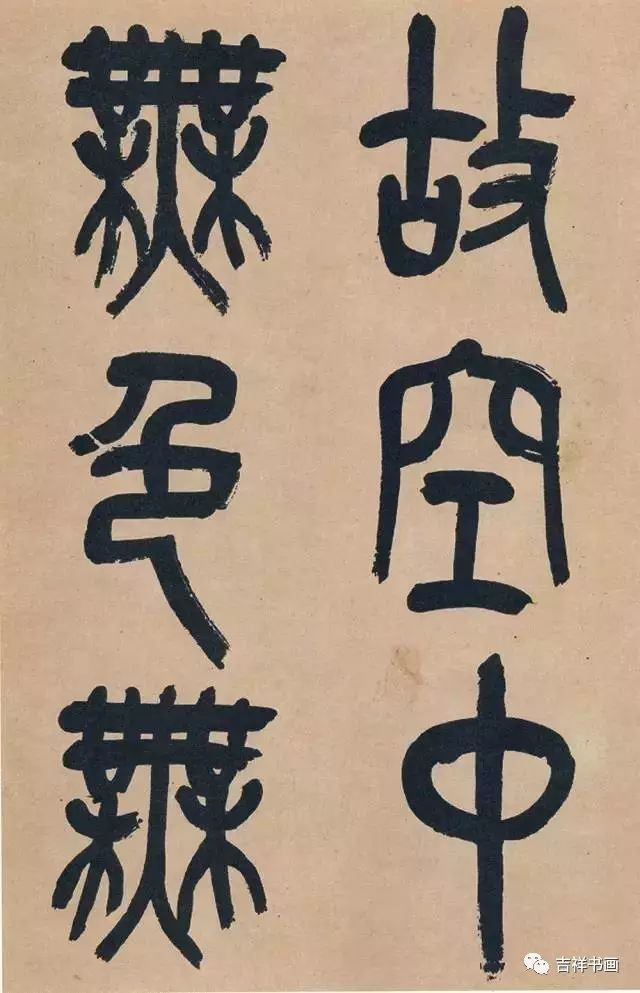 故空中
無色無
吉祥书画